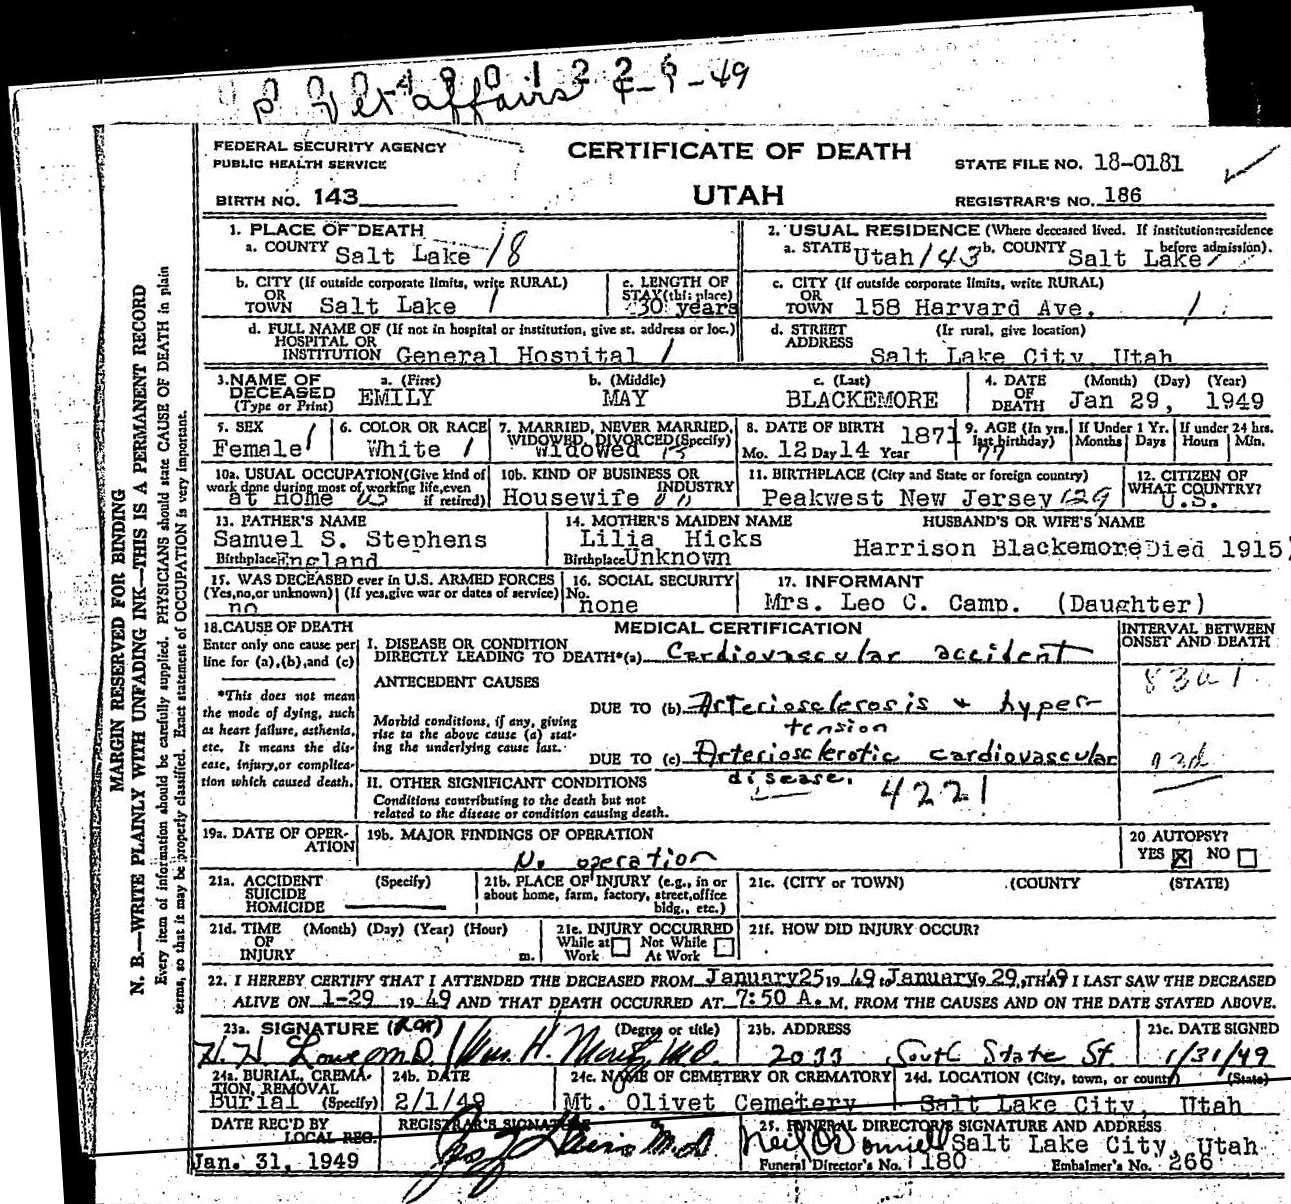 Vet affairs 4-9-49
FEDERAL SECURITY AGENCY
PUBLIC HEALTH SERVICE
CERTIFICATE OF DEATH
STATE FILE NO. 18-0181
BIRTH NO. 143
UTAH
REGISTRAR'S NO. 186
MARGIN RESERVED FOR BINDING
N. B.—WRITE PLAINLY WITH UNFADING INK—THIS IS A PERMANENT RECORD
Every item of information should be carefully supplied. PHYSICIANS should state CAUSE OF DEATH in plain
terms, so that it may be properly classified. Exact statement of OCCUPATION is very important.
1. PLACE OF DEATH
a. COUNTY Salt Lake 18
2. USUAL RESIDENCE (Where deceased lived. If institution: residence before admission).
a. STATE Utah 143 b. COUNTY Salt Lake
b. CITY (If outside corporate limits, write RURAL) OR TOWN Salt Lake 1
c. LENGTH OF STAY (this place) 30 years
c. CITY (If outside corporate limits, write RURAL) OR TOWN 158 Harvard Ave. 1
d. FULL NAME OF (If not in hospital or institution, give st. address or loc.) HOSPITAL OR INSTITUTION General Hospital 1
d. STREET ADDRESS (If rural, give location) Salt Lake City, Utah
3. NAME OF DECEASED (Type or Print)
a. (First) EMILY
b. (Middle) MAY
c. (Last) BLACKEMORE
4. DATE OF DEATH (Month) (Day) (Year) Jan 29, 1949
5. SEX Female 1
6. COLOR OR RACE White 1
7. MARRIED, NEVER MARRIED, WIDOWED, DIVORCED (Specify) Widowed
8. DATE OF BIRTH Mo. 12 Day 14 Year 1871
9. AGE (In yrs. last birthday) 77
If Under 1 Yr. Months Days
If under 24 hrs. Hours Min.
10a. USUAL OCCUPATION (Give kind of work done during most of working life, even if retired) at Home
10b. KIND OF BUSINESS OR INDUSTRY Housewife
11. BIRTHPLACE (City and State or foreign country) Peakwest New Jersey 129
12. CITIZEN OF WHAT COUNTRY? U.S.
13. FATHER'S NAME Samuel S. Stephens
Birthplace England
14. MOTHER'S MAIDEN NAME Lilia Hicks
Birthplace Unknown
HUSBAND'S OR WIFE'S NAME
Harrison Blackemore Died 1915
15. WAS DECEASED ever in U.S. ARMED FORCES
(Yes, no, or unknown) (If yes, give war or dates of service)
no
16. SOCIAL SECURITY No. none
17. INFORMANT
Mrs. Leo C. Camp. (Daughter)
18. CAUSE OF DEATH
Enter only one cause per line for (a), (b), and (c)
*This does not mean the mode of dying, such as heart failure, asthenia, etc. It means the disease, injury, or complication which caused death.
MEDICAL CERTIFICATION
INTERVAL BETWEEN ONSET AND DEATH
I. DISEASE OR CONDITION DIRECTLY LEADING TO DEATH*(a) Cardiovascular accident
ANTECEDENT CAUSES
Morbid conditions, if any, giving rise to the above cause (a) stating the underlying cause last.
DUE TO (b) Arteriosclerosis + hyper-
tension
DUE TO (c) Arteriosclerotic cardiovascular
disease.
4221
II. OTHER SIGNIFICANT CONDITIONS
Conditions contributing to the death but not related to the disease or condition causing death.
19a. DATE OF OPERATION
19b. MAJOR FINDINGS OF OPERATION
No operation
20 AUTOPSY?
YES ☒ NO ☐
21a. ACCIDENT SUICIDE HOMICIDE (Specify)
21b. PLACE OF INJURY (e.g., in or about home, farm, factory, street, office bldg., etc.)
21c. (CITY or TOWN) (COUNTY (STATE)
21d. TIME OF INJURY (Month) (Day) (Year) (Hour) m.
21e. INJURY OCCURRED
While at Work ☐ Not While At Work ☐
21f. HOW DID INJURY OCCUR?
22. I HEREBY CERTIFY THAT I ATTENDED THE DECEASED FROM January 25 19 49 to January 29, 49 I LAST SAW THE DECEASED
ALIVE ON 1-29 19 49 AND THAT DEATH OCCURRED AT 7:50 A. M. FROM THE CAUSES AND ON THE DATE STATED ABOVE.
23a. SIGNATURE (Degree or title)
Wm. H. Moritz M.D.
23b. ADDRESS
2033 South State St.
23c. DATE SIGNED
1/31/49
24a. BURIAL, CREMATION, REMOVAL (Specify) Burial
24b. DATE 2/1/49
24c. NAME OF CEMETERY OR CREMATORY Mt. Olivet Cemetery
24d. LOCATION (City, town, or county) (State) Salt Lake City, Utah
DATE REC'D BY LOCAL REG.
Jan. 31, 1949
REGISTRAR'S SIGNATURE
25. FUNERAL DIRECTOR'S SIGNATURE AND ADDRESS
Neil O'Donnell Salt Lake City, Utah
Funeral Director's No. 180 Embalmer's No. 266